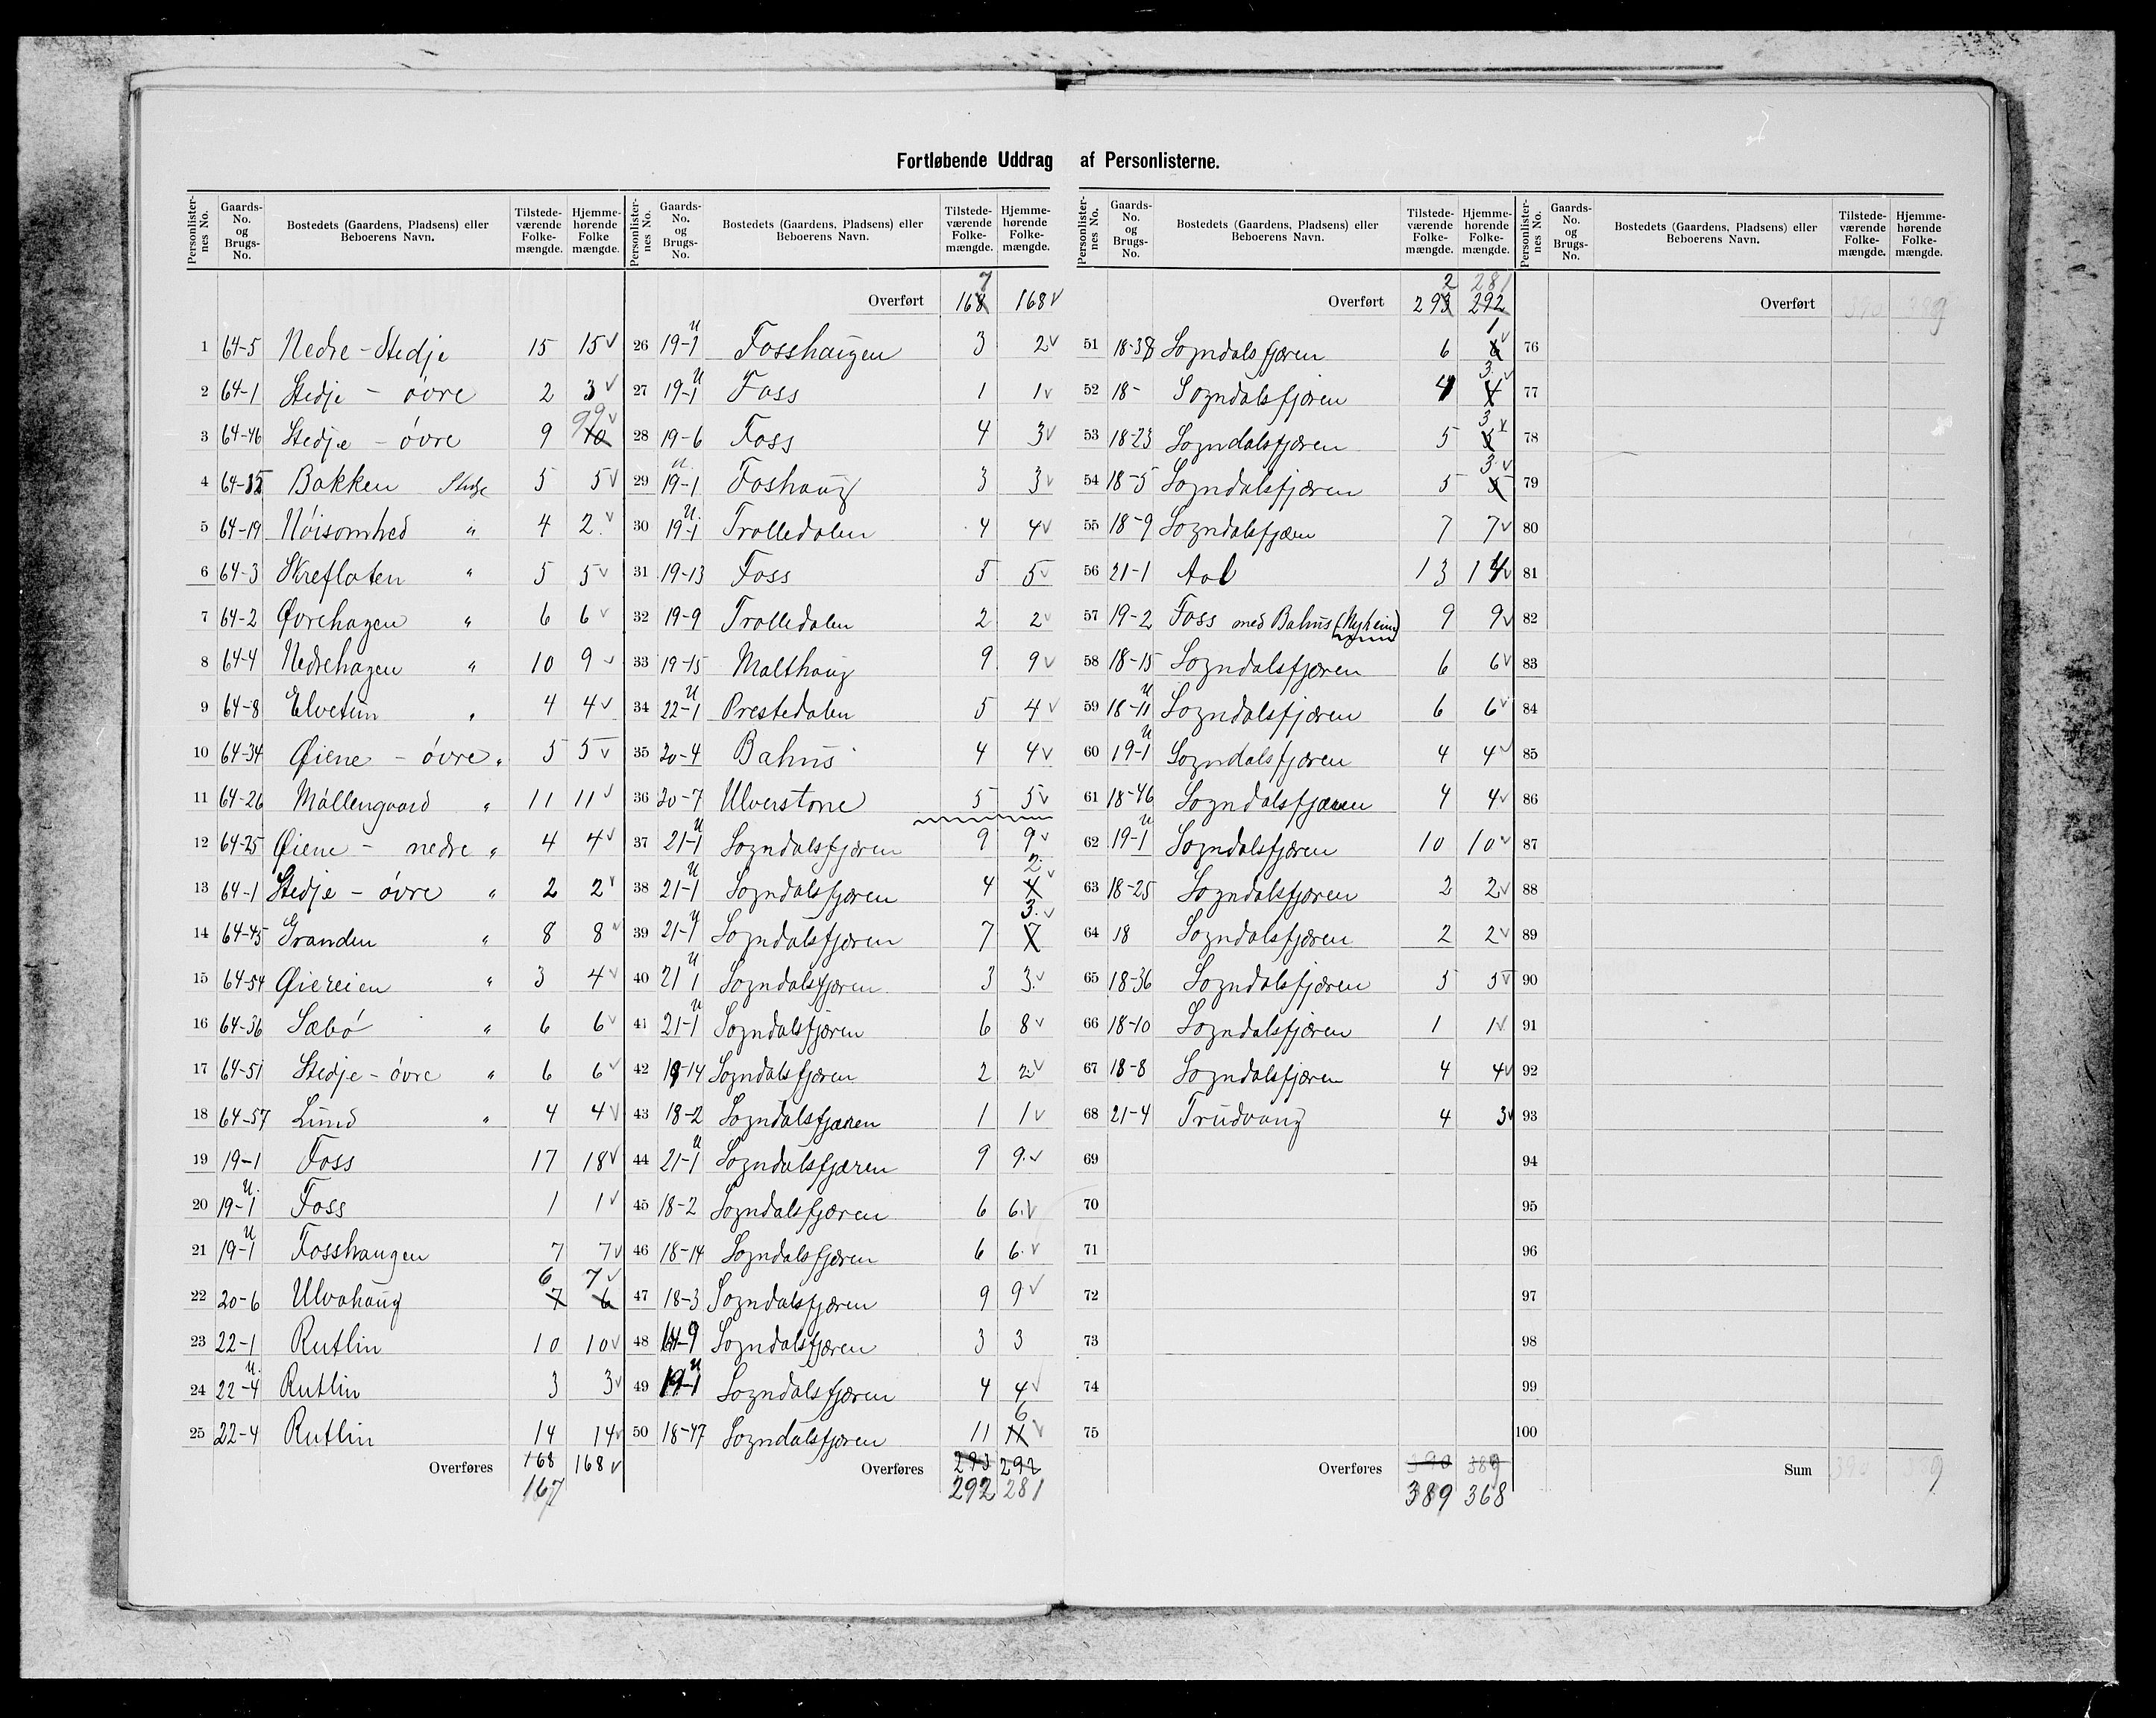 Fortløbende Uddrag af Personlisterne.
Personlisternes No. Gaards-No. og Brugs-No. Bostedets (Gaardens, Pladsens) eller Beboerens Navn. Tilstedeværende Folkemængde. Hjemmehørende Folke mængde.
1 64-5 Nedre-Stedje 15 15 v
2 64-1 Stedje - øvre 2 3 v
3 64-46 Stedje - øvre 9 10 9 v
4 64-32 Bakken Stedje 5 5 v
5 64-19 Nøisomhed " 4 2 v
6 64-3 Skrefloten " 5 5 v
7 64-2 Øvrehagen " 6 6 v
8 64-4 Nedrehagen " 10 9 v
9 64-8 Elvetun " 4 4 v
10 64-34 Øiene - øvre " 5 5 v
11 64-26 Møllengaard " 11 11 v
12 64-25 Øiene - nedre " 4 4 v
13 64-1 Stedje - øvre " 2 2 v
14 64-45 Granden " 8 8 v
15 64-54 Øiereien " 3 4 v
16 64-36 Sæbø " 6 6 v
17 64-51 Stedje - øvre " 6 6 v
18 64-57 Lund " 4 4 v
19 19-1 Foss 17 18 v
20 19-1 u. Foss 1 1 v
21 19-1 u Fosshaugen 7 7 v
22 20-6 Ulvahaug 7 6 6 7 v
23 22-1 Rutlin 10 10 v
24 22-4 u. Rutlin 3 3 v
25 22-4 Rutlin 14 14 v
Overføres 168 168 v
167
Personlisternes No. Gaards-No. og Brugs-No. Bostedets (Gaardens, Pladsens) eller Beboerens Navn. Tilstedeværende Folkemængde. Hjemmehørende Folkemængde.
Overført 168 7 168 v
26 19-1 u Fosshaugen 3 2 v
27 19-1 u Foss 1 1 v
28 19-6 Foss 4 3 v
29 19-1 u. Foshaug 3 3 v
30 19-1 u. Trolledalen 4 4 v
31 19-13 Foss 5 5 v
32 19-9 Trolledalen 2 2 v
33 19-15 Malthaug 9 9 v
34 22-1 u Prestedalen 5 4 v
35 20-4 Bahus 4 4 v
36 20-7 Ulverstone 5 5 v
37 21-1 u Sogndalsfjæren 9 9 v
38 21-1 u Sogndalsfjæren 4 4 2. v
39 21-1 u Sogndalsfjæren 7 7 3. v
40 21 1 u Sogndalsfjæren 3 3 v
41 21-1 u Sogndalsfjæren 6 8 v
42 18-14 Sogndalsfjæren 2 2 v
43 18-2 Sogndalsfjæren 1 1 v
44 21-1 u Sogndalsfjæren 9 9 v
45 18-2 Sogndalsfjæren 6 6 v
46 18-14 Sogndalsfjæren 6 6 v
47 18-3 Sogndalsfjæren 9 9 v
48 Sogndalsfjæren 3 3
49 19-1 u Sogndalsfjæren 4 4 v
50 18-47 Sogndalsfjæren 11 11 6 v
Overføres 293 292
292 281
Personlisternes No. Gaards-No. og Brugs-No. Bostedets (Gaardens, Pladsens) eller Beboerens Navn. Tilstedeværende Folkemængde. Hjemmehørende Folkemængde.
2 281
Overført 293 292
51 18-38 Sogndalsfjæren 6 6 1 v
52 18- Sogndalsfjæren 4 4 3. v
53 18-23 Sogndalsfjæren 5 5 3 v
54 18-5 Sogndalsfjæren 5 5 3. v
55 18-9 Sogndalsfjæren 7 7 v
56 21-1 Aal 13 14 v
57 19-2 Foss med Bahus (Nyheim) 9 9 v
58 18-15 Sogndalsfjæren 6 6 v
59 18-11 u Sogndalsfjæren 6 6 v
60 19-1 u Sogndalsfjæren 4 4 v
61 18-46 Sogndalsfjæren 4 4 v
62 19-1 u Sogndalsfjæren 10 10 v
63 18-25 Sogndalsfjæren 2 2 v
64 18 Sogndalsfjæren 2 2 v
65 18-36 Sogndalsfjæren 5 5 v
66 18-10 Sogndalsfjæren 1 1 v
67 18-8 Sogndalsfjæren 4 4 v
68 21-4 Trudvang 4 3 v
69
70
71
72
73
74
75
Overføres 390 389
389 368
Personlisternes No. Gaards-No. og Brugs-No. Bostedets (Gaardens, Pladsens) eller Beboerens Navn. Tilstedeværende Folkemængde. Hjemmehørende Folkemængde.
Overført
76
77
78
79
80
81
82
83
84
85
86
87
88
89
90
91
92
93
94
95
96
97
98
99
100
Sum